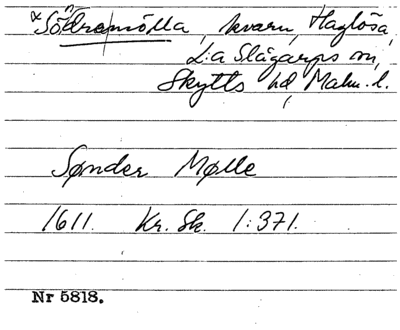 × Södramölla, kvarn, Haglösa,
L:a Slågarps sn,
Skytts hd, Malm. l.
Sønder Mølle
1611. Kr. Sk. 1:371.
Nr 5818.